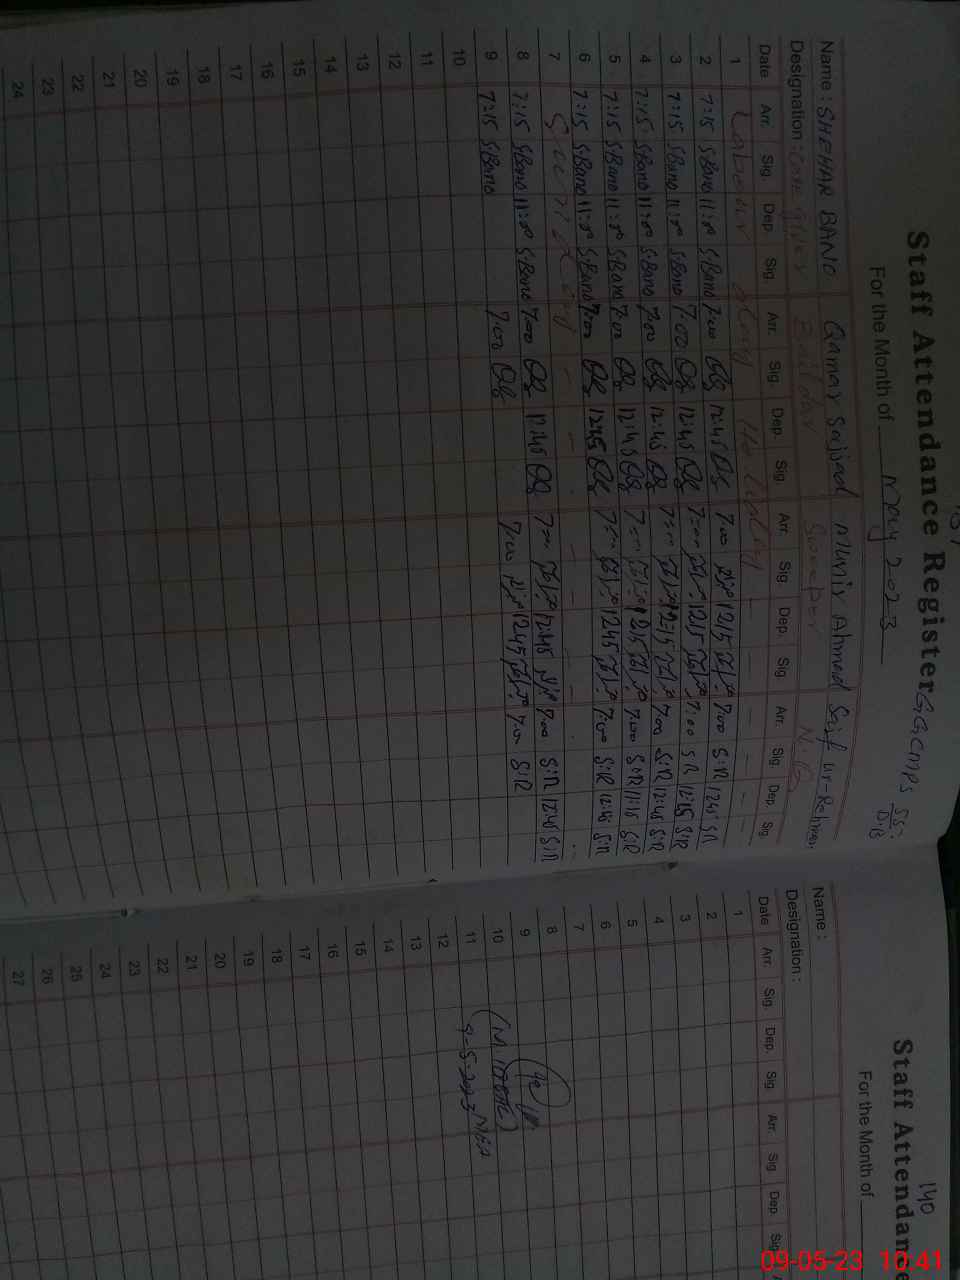 Staff Attendance Register GGCMPS
For the Month of May 2023
Name : SHEHAR BANO Qamar Sajjad Munir Ahmed Saif ur-Rehman
Designation : Care giver Baildar Sweeper N.Q
Date Arr. Sig. Dep. Sig. Arr. Sig. Dep. Sig. Arr. Sig. Dep. Sig. Arr. Sig. Dep. Sig.
1 Labour Day Holiday
2 7:15 S.Bano 11:00 S.Bano 7:00 12:45 7:00 12:15 7:00 S:R 12:45 S.R
3 7:15 S.Bano 11:00 S.Bano 7:00 12:45 7:00 12:15 7:00 S.R 12:15 S.R
4 7:15 S.Bano 11:00 S.Bano 7:00 12:45 7:00 12:15 7:00 S.R 12:45 S.R
5 7:15 S.Bano 11:00 S.Bano 7:00 12:45 7:00 12:15 7:00 S.R 11:15 S.R
6 7:15 S.Bano 11:00 S.Bano 7:00 12:45 7:00 12:45 7:00 S.R 12:45 S.R
7 Sunday
8 7:15 S.Bano 11:00 S.Bano 7:00 12:45 7:00 12:45 7:00 S:R 12:45 S:R
9 7:15 S.Bano 7:00 7:00 12:45 7:00 S:R
10
11
12
13
14
15
16
17
18
19
20
21
22
23
24
140
Staff Attendance
For the Month of
Name :
Designation :
Date Arr. Sig. Dep. Sig. Arr. Sig. Dep. Sig.
1
2
3
4
5
6
7
8
9
10 (M. IQBAL)
11 9-5-2023 MEA
12
13
14
15
16
17
18
19
20
21
22
23
24
25
26
27
09-05-23 10:41